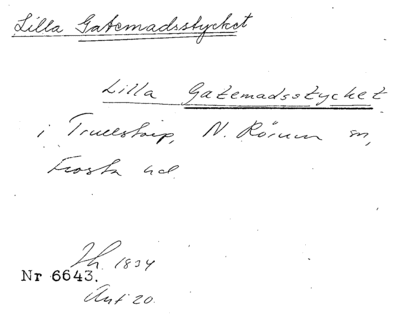 Lilla Gatemadsstycket
Lilla Gatemadsstycket
i Trullstorp, N. Rörum sn,
Frosta hd.
Jh. 1834
Nr 6643.
Ant 20.